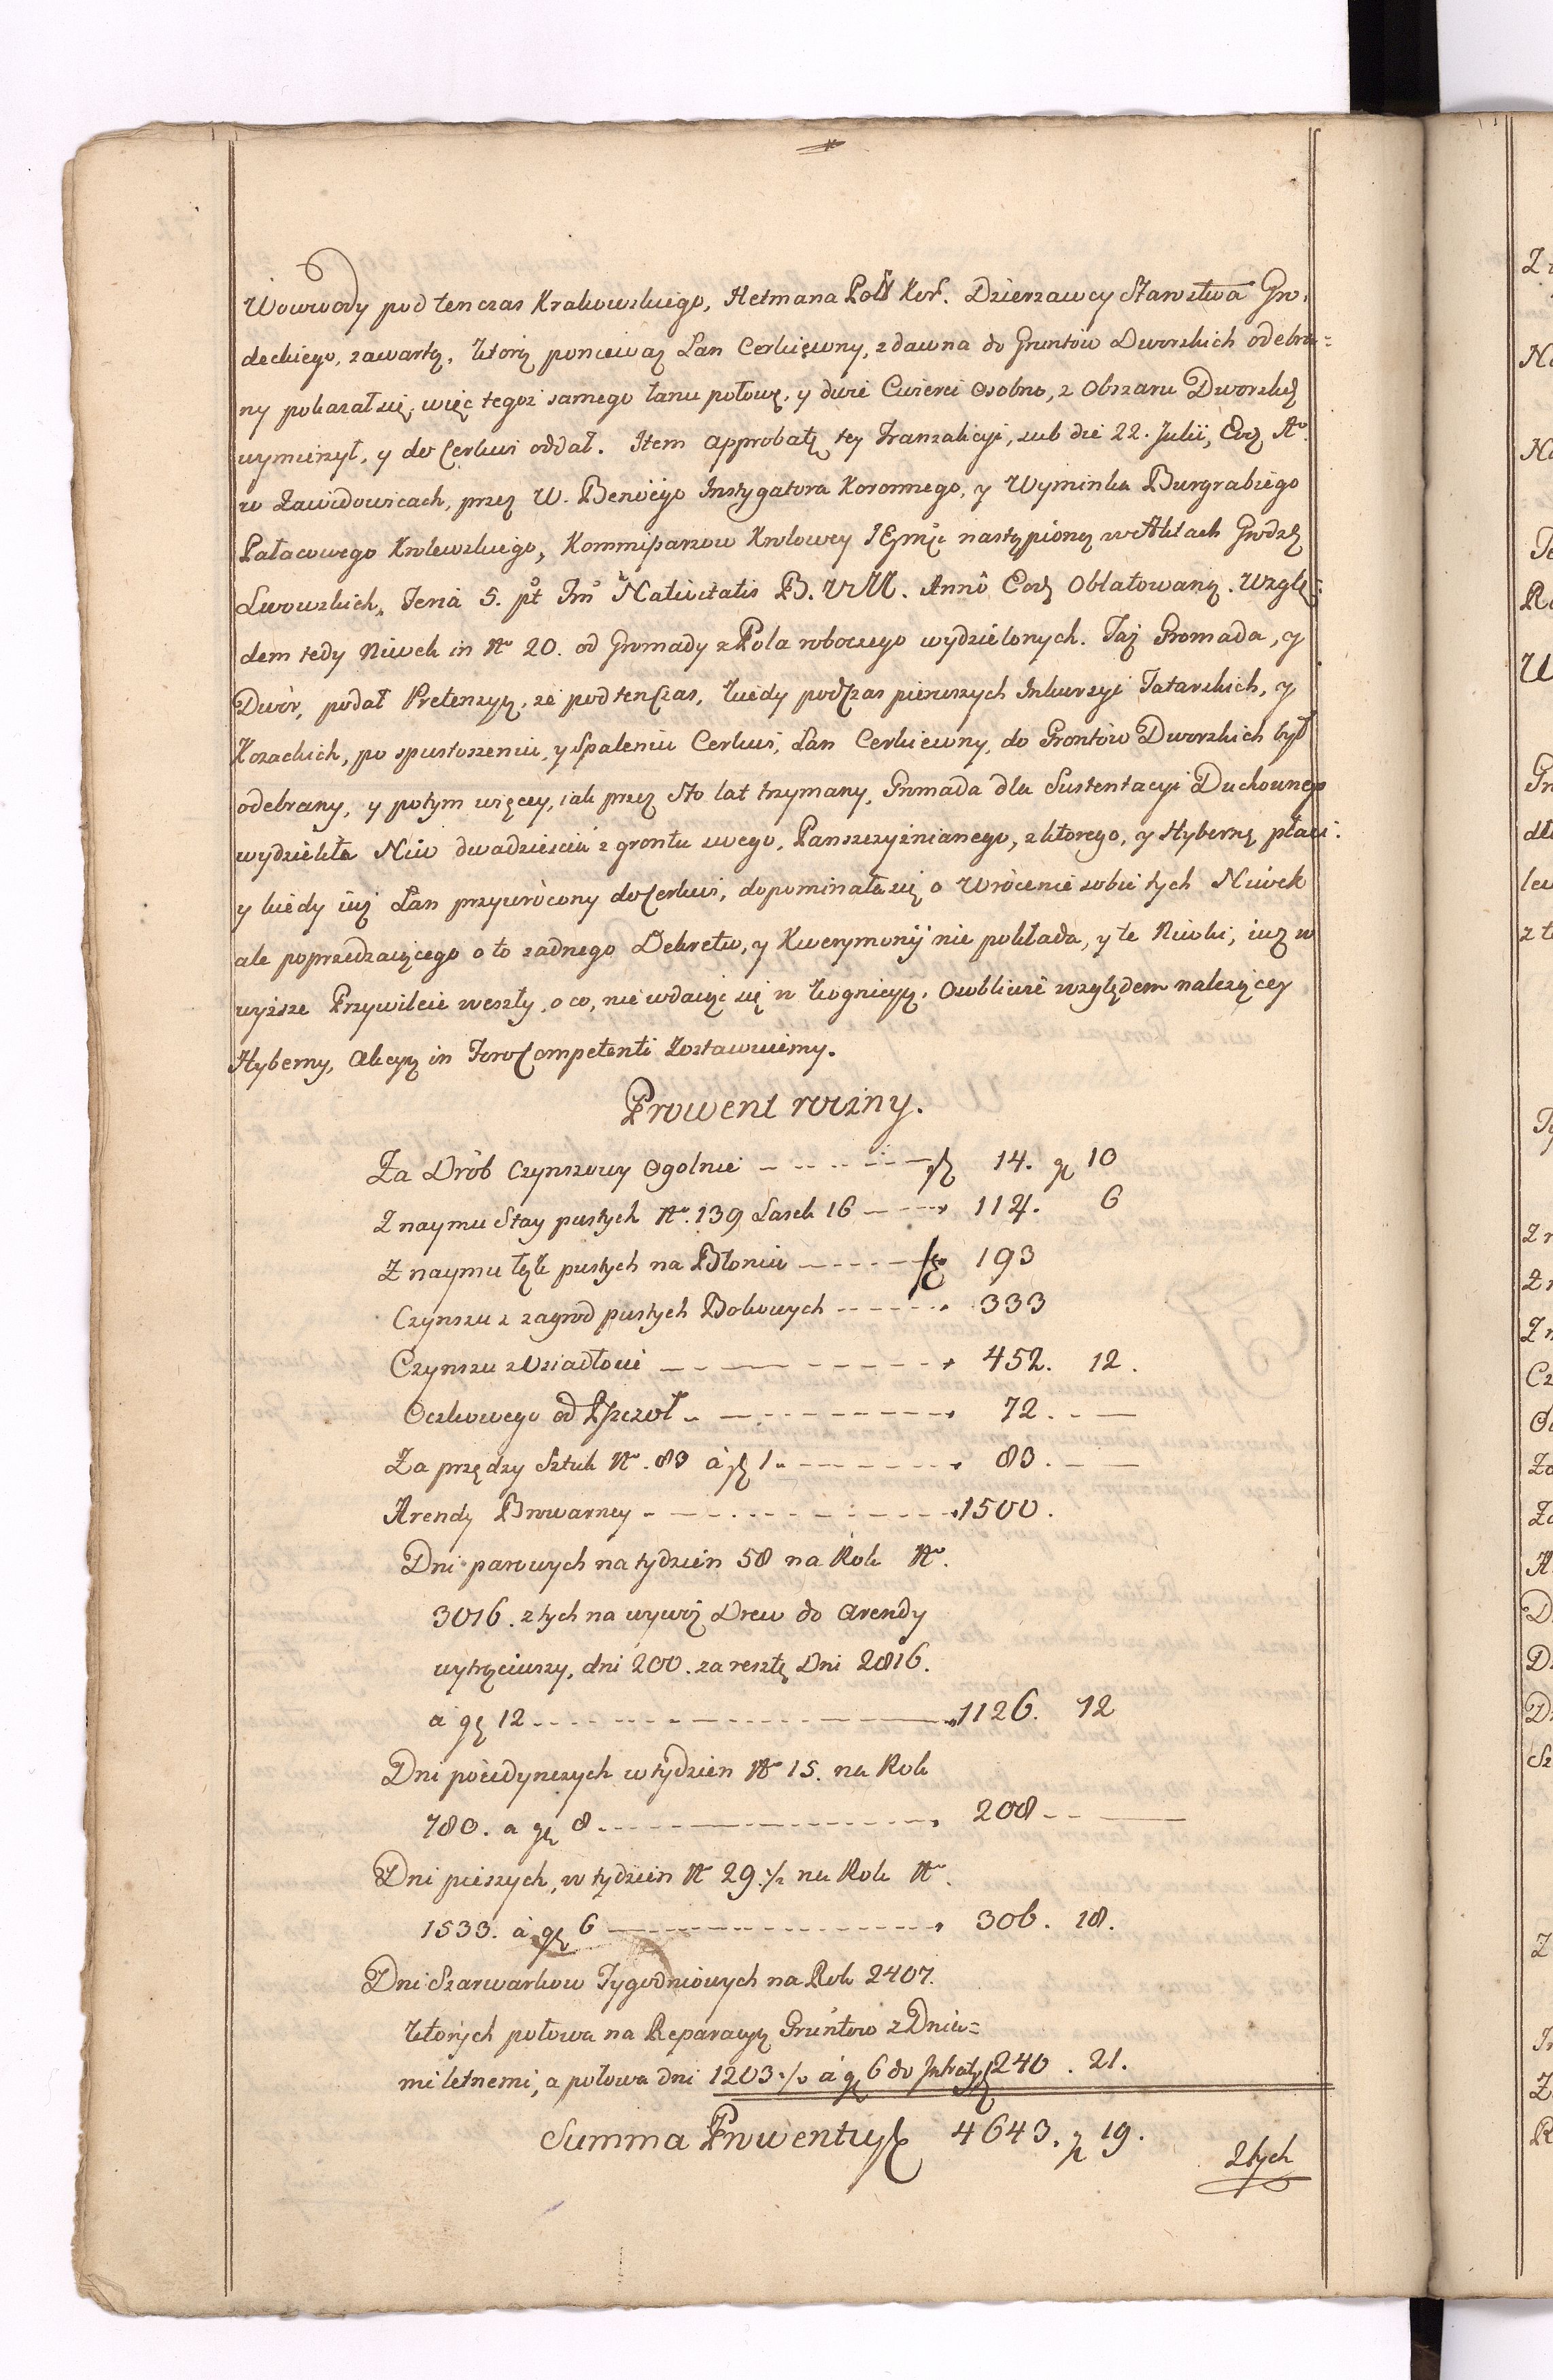 Wowody pod ten czas Krakowskiego, Hetmana Poln Kor. Dzierzawcy Starostwa Gro,
deckiego, zawartą, ktorą poniewaz Łan Cerkiewny, zdawna do Gruntow Dworskich odebra=
ny pokazał się, więc tegoż samego łanu połowę, y dwie Cwierci Osobno, z Obszaru Dworskie
wymierzył, y do Cerkwi oddał. Item Approbatę tey Tranzakcyi, sub die 22. Julii, Eod Ao.
w Zawidowicach, przez W. Benoiego Instygatora Koronnego, y Wyminka Burgrabiego
Pałacowego Krolewskiego, Kommissarzow Krolowey JEymci nastąpioney w Aktach Grodz
Lwowskich, Feria 5. pt Fm Nativitatis B. V. M. Anno Eod Oblatowaną. Wzglę:
dem tedy Niwek in No 20. od Gromady z Pola roboczego wydzielonych. Taż Gromada, y
Dwor, podał Pretensyą, ze pod ten Czas, kiedy podczas pierwszych Inkursyi Tatarskich, y
Kozackich, po spustoszeniu, y Spaleniu Cerkwi, Łan Cerkiewny, do Grontow Dworskich był
odebrany, y potym więcey, iak przez Sto lat trzymany, Gromada dla Sustentacyi Duchownego
wydzieliła Niw dwadziescia z grontu swego, Panszczyznianego, z ktorego, y Hybernę płaci.
y kiedy iuz Łan przywrocony do Cerkwi, dopominała się o Wrocenie sobie tych Niwek
ale poprzedzaiącego o to zadnego Dekretu, y Kwerymonij nie pokłada, y te Niwki, iuz w
wyzsze Przywileie weszły, o co, nie wdaiąc się w Kognicyą, Osobliwie względem nalezącey
Hyberny, Akcyą in Foro Competenti Zostawuiemy.
Prowent roczny.
Za Drób Czynszowy Ogolnie zł 14. gr 10
Z naymu Stay pustych No. 139 Lasek 16 114. 6
Z naymu łąk pustych na Błoniu zł 193
Czynszu z zagrod pustych Bokowych 333
Czynszu z Osiadłosci 452. 12.
Oczkowego od Pszczoł 72. —
Za przędzy Sztuk No. 83 à zł 1. 83. —
Arendy Browarney 1500.
Dni parowych na tydzien 58 na Rok No.
3016. z tych na wywoz Drew do Arendy
wytrąciwszy, dni 200. za resztę Dni 2816.
à gr 12 1126. 12
Dni poiedynczych w tydzien No 15. na Rok
780. a gr 8 208 —
Dni pieszych, w tydzien No 29 ½ na Rok No.
1533. à gr 6 306. 18.
Dni Szarwarkow Tygodniowych na Rok 2407.
ktorych połowa na Reparacyą Gruntow z Dnia=
mi letnemi, a połowa dni 1203 ½ à gr 6 do Intraty zł 240. 21.
Summa Prowentu zł 4643. gr 19.
Z tych